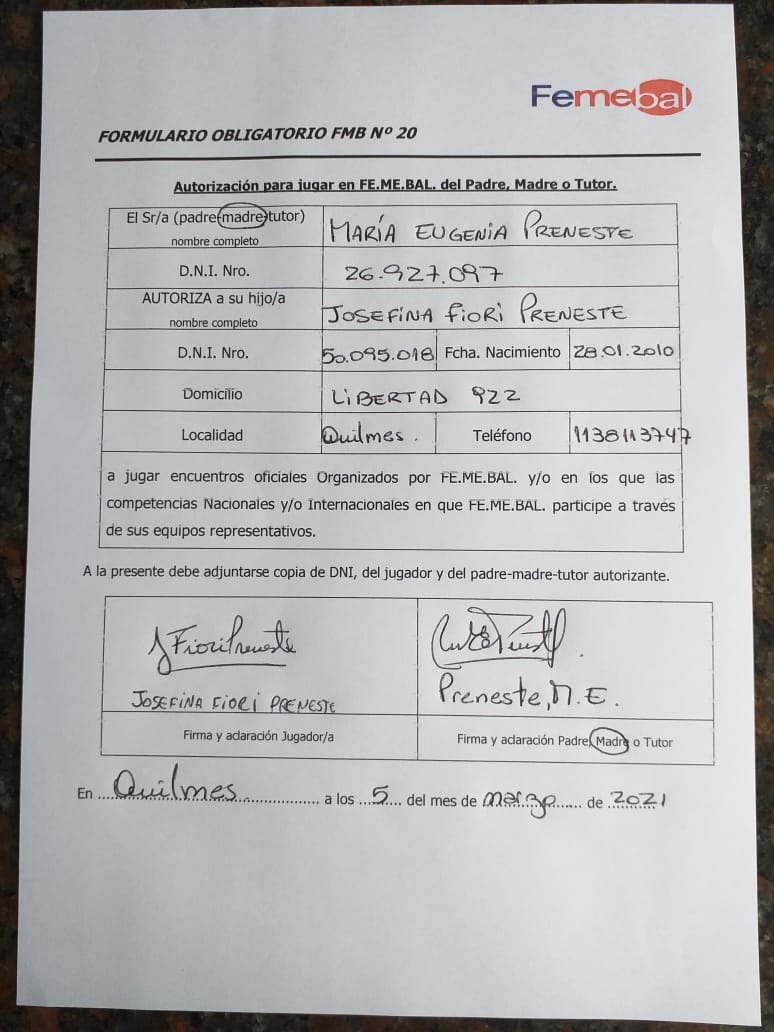 Femebal
FORMULARIO OBLIGATORIO FMB Nº 20
Autorización para jugar en FE.ME.BAL. del Padre, Madre o Tutor.
El Sr/a (padre-madre-tutor) nombre completo MARÍA EUGENIA PRENESTE
D.N.I. Nro. 26.927.097
AUTORIZA a su hijo/a nombre completo JOSEFINA FIORI PRENESTE
D.N.I. Nro. 50.095.018 Fcha. Nacimiento 28.01.2010
Domicilio LIBERTAD 922
Localidad Quilmes. Teléfono 1138113747
a jugar encuentros oficiales Organizados por FE.ME.BAL. y/o en los que las
competencias Nacionales y/o Internacionales en que FE.ME.BAL. participe a través
de sus equipos representativos.
A la presente debe adjuntarse copia de DNI, del jugador y del padre-madre-tutor autorizante.
J Fiori Preneste
JOSEFINA FIORI PRENESTE Preneste, M.E.
Firma y aclaración Jugador/a Firma y aclaración Padre, Madre o Tutor
En Quilmes a los 5 del mes de marzo de 2021